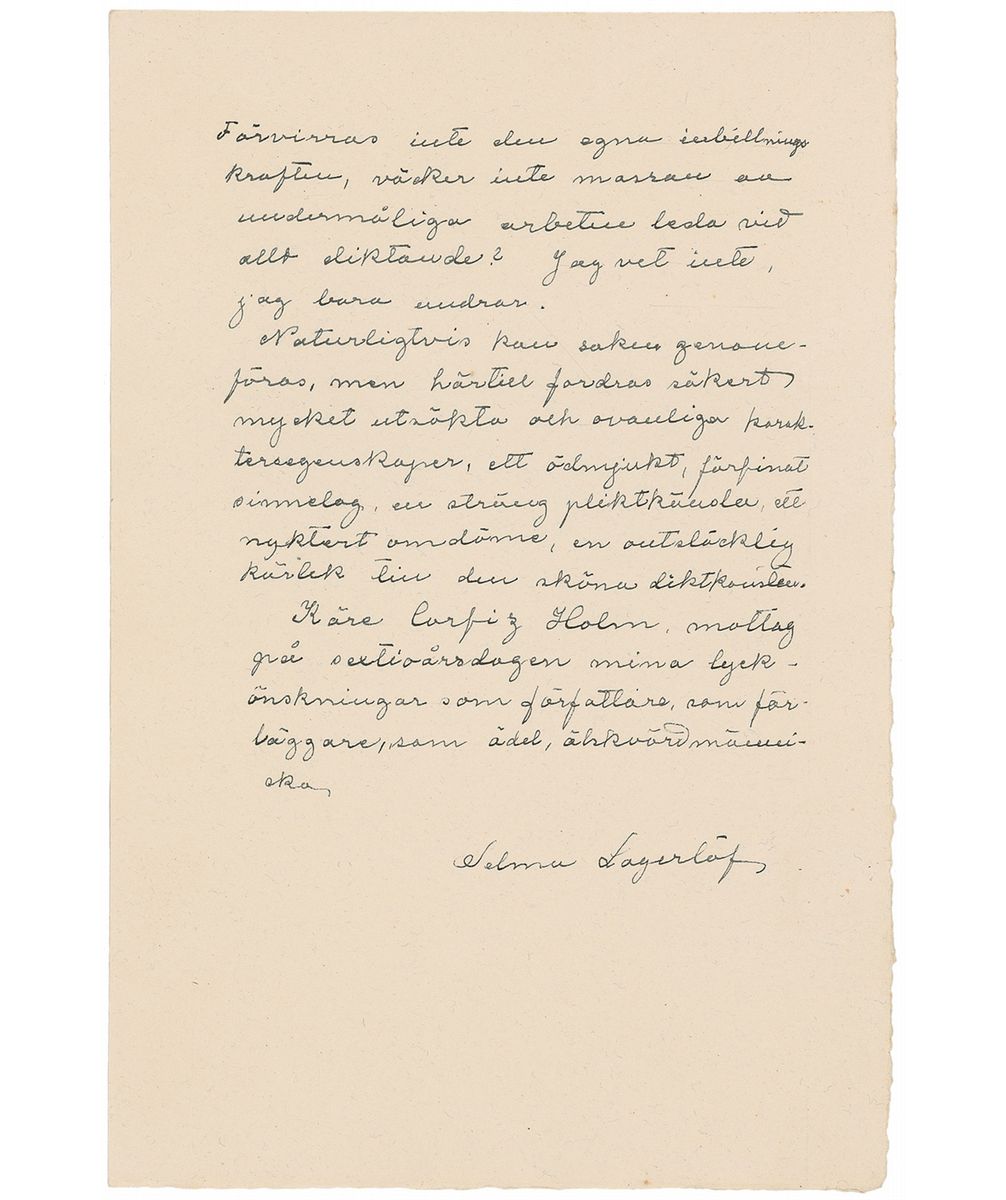 Förvirras inte den egna inbillnings
kraften, väcker inte massan av
undermåliga arbeten leda vid
allt diktande? Jag vet inte,
jag bara undrar.
Naturligtvis kan saken genom-
föras, men härtill fordras säkert
mycket utsökta och ovanliga karak-
tersegenskaper, ett ödmjukt, förfinat
sinnelag, en sträng pliktkänsla, ett
nyktert omdöme, en outsläcklig
kärlek till den sköna diktkonsten.
Käre Corfiz Holm, mottag
på sextioårsdagen mina lyck-
önskningar som författare, som för-
läggare, som ädel, älskvärd männi-
ska,
Selma Lagerlöf